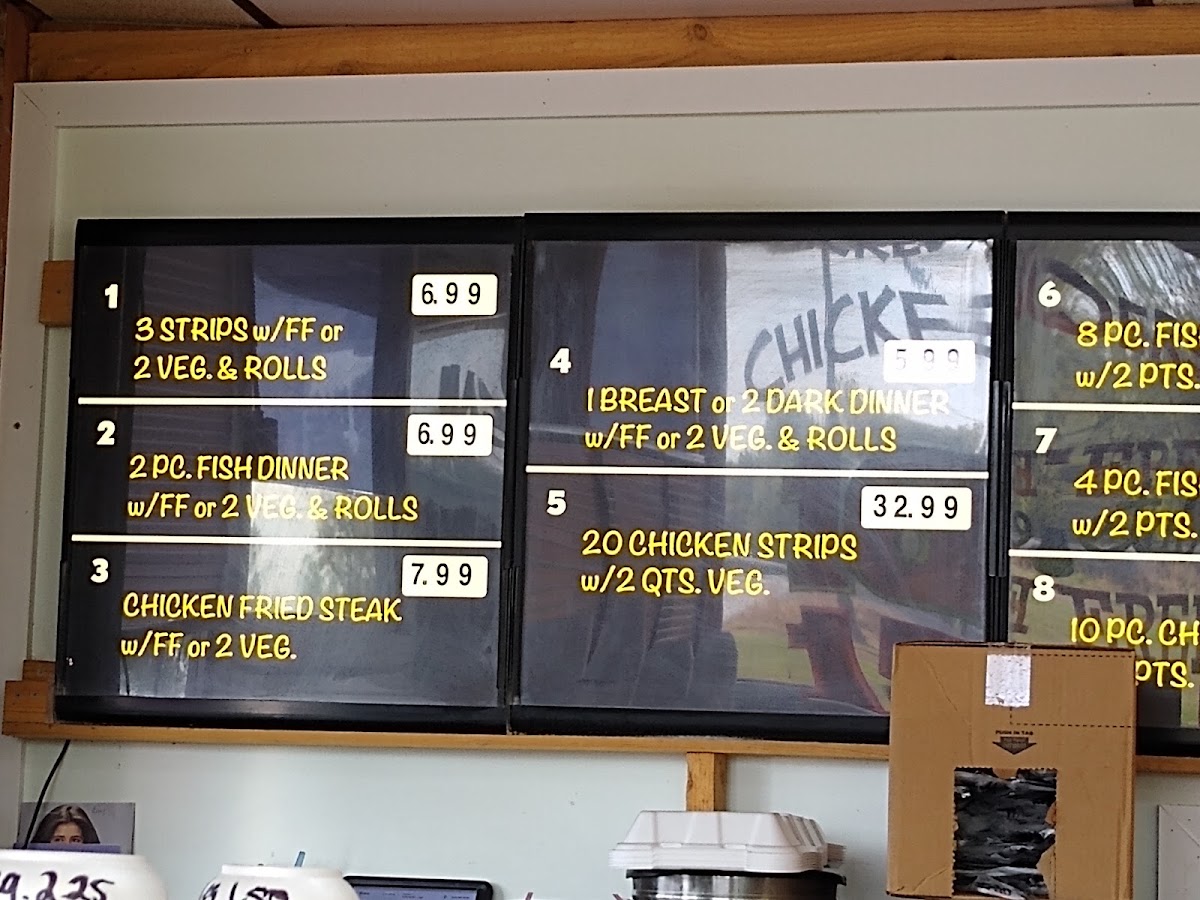 1 6.99
3 STRIPS w/FF or
2 VEG. & ROLLS
2 6.99
2 PC. FISH DINNER
w/FF or 2 VEG. & ROLLS
3 7.99
CHICKEN FRIED STEAK
w/FF or 2 VEG.
CHICKE
4 5 99
1 BREAST or 2 DARK DINNER
w/FF or 2 VEG. & ROLLS
5 32.99
20 CHICKEN STRIPS
w/2 QTS. VEG.
6
8 PC. FIS
w/2 PTS.
7
4 PC. FIS
w/2 PTS.
8
10 PC. CH
PTS.
PUSH IN TAB